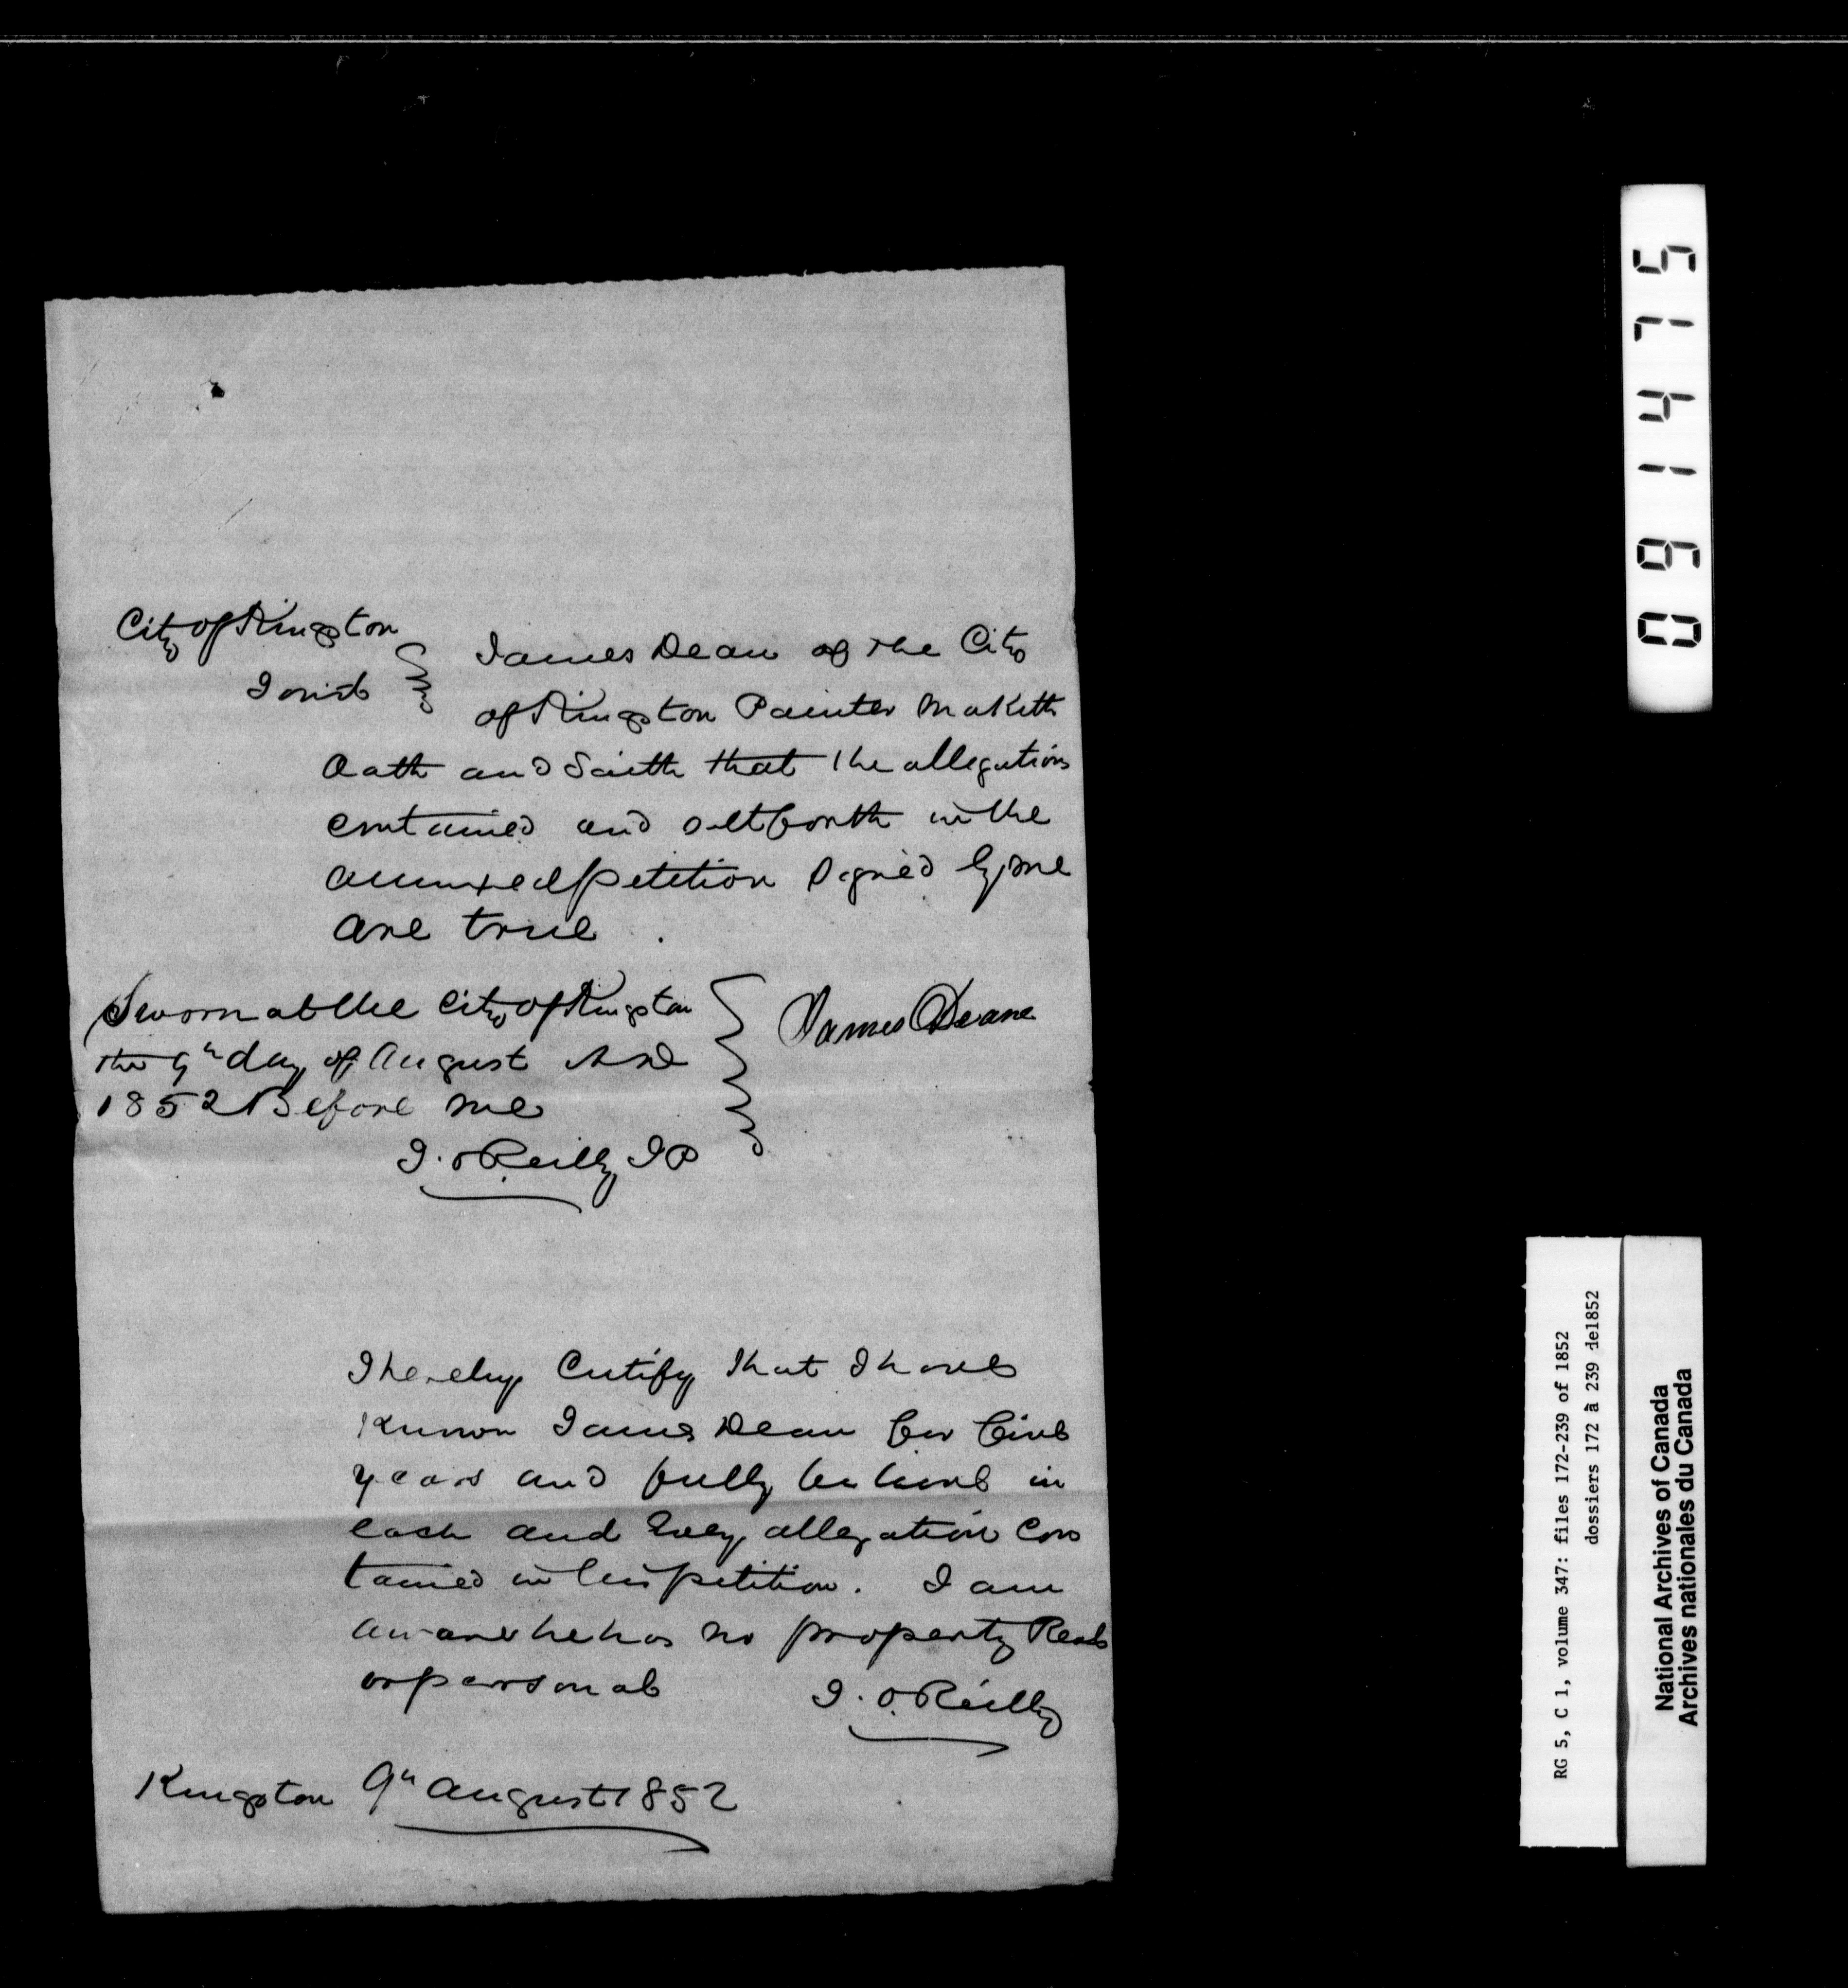 City of Kingston
To wit
James Dean of the City
of Kingston Painter Maketh
Oath and Saith that the allegations
contained and set forth in the
annexed petition Signed by me
are true .
Sworn at the City of Kingston
the 9th day of August AD
1852 Before me
James Deane
J. O'Reilly JP
I hereby Certify that I have
Known James Dean for five
years and fully believe in
each and every allegation Con
tained in his petition. I am
aware he has no property Real
or personal
J. O'Reilly
Kingston 9th August 1852
061475
RG 5, C 1, volume 347: files 172-239 of 1852
dossiers 172 à 239 de1852
National Archives of Canada
Archives nationales du Canada